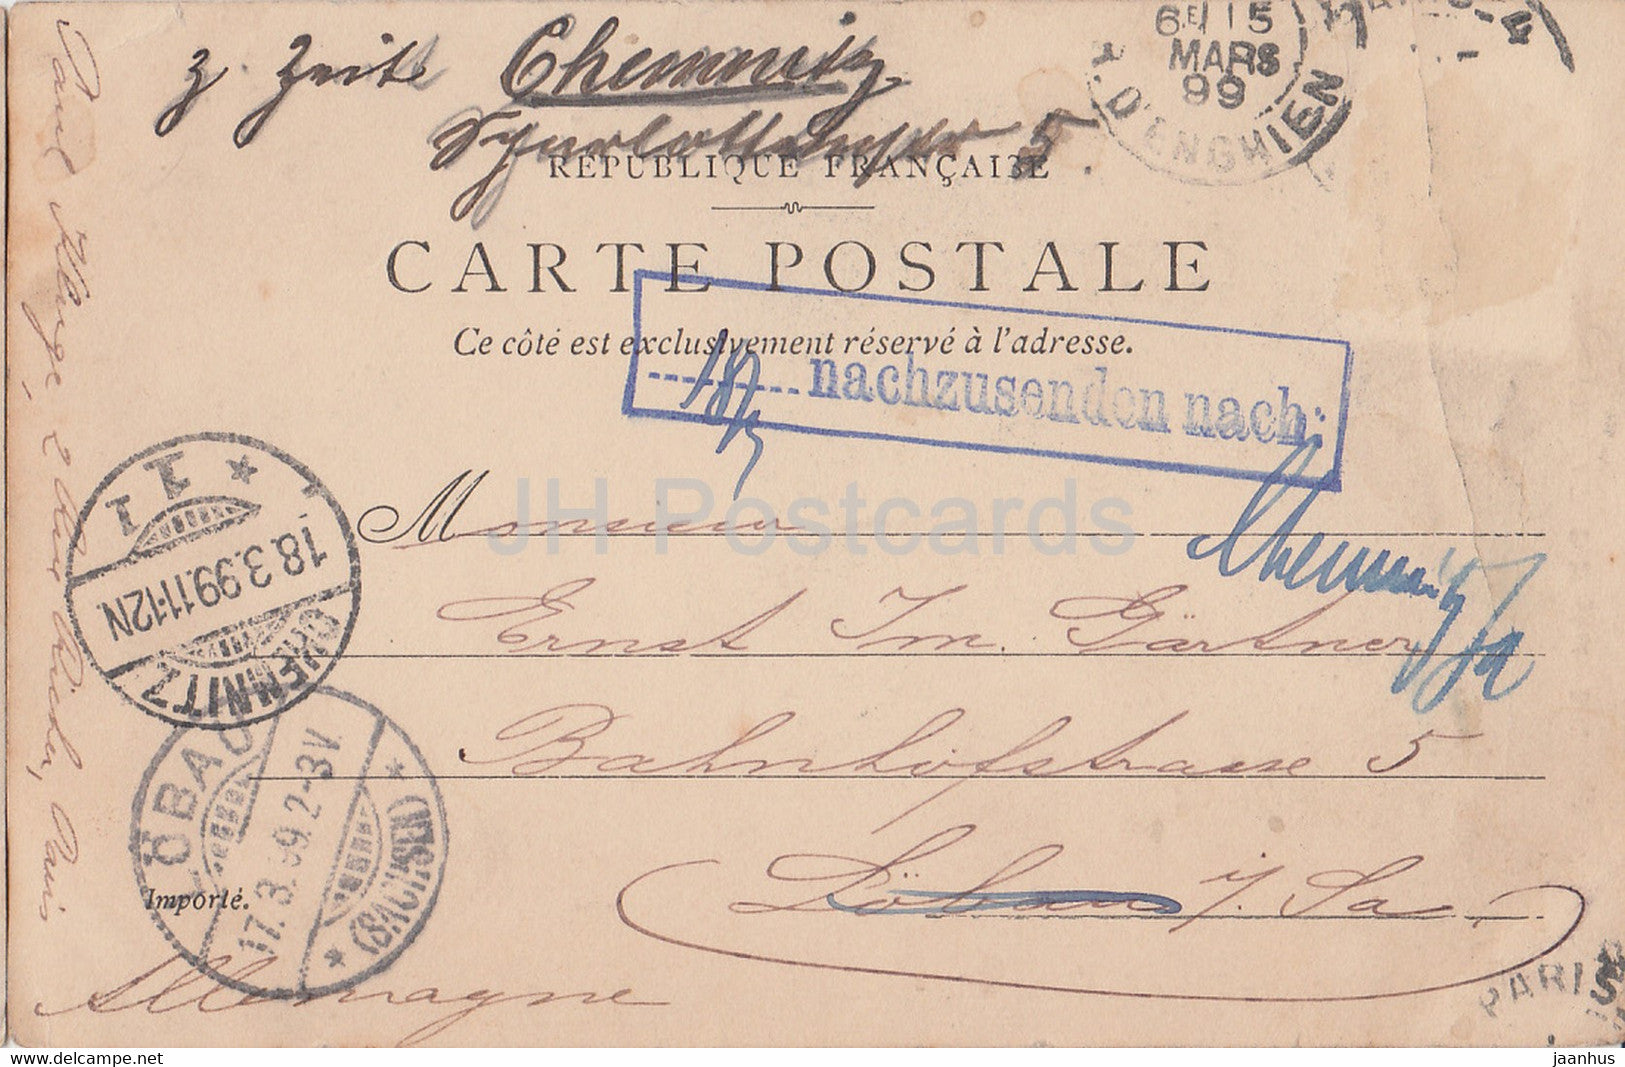 z. Zeit Chemnitz
5
6E 15
MARS
99
R. D'ENGHIEN
RÉPUBLIQUE FRANÇAISE
CARTE POSTALE
Ce côté est exclusivement réservé à l'adresse.
18/3
nachzusenden nach:
Chemnitz
Monsieur
Ernst Im. Gärtner
Bahnhofstrasse 5
Löbau i/. Sa.
Allemagne
Importé.
CHEMNITZ
18.3.99.11-12N
* 1
LÖBAU
17.3.99.2-3V.
* (SACHSEN) *
PARIS
Paul Kluge, 2 Rue Richer, Paris
JH Postcards
www.delcampe.net
jaanhus